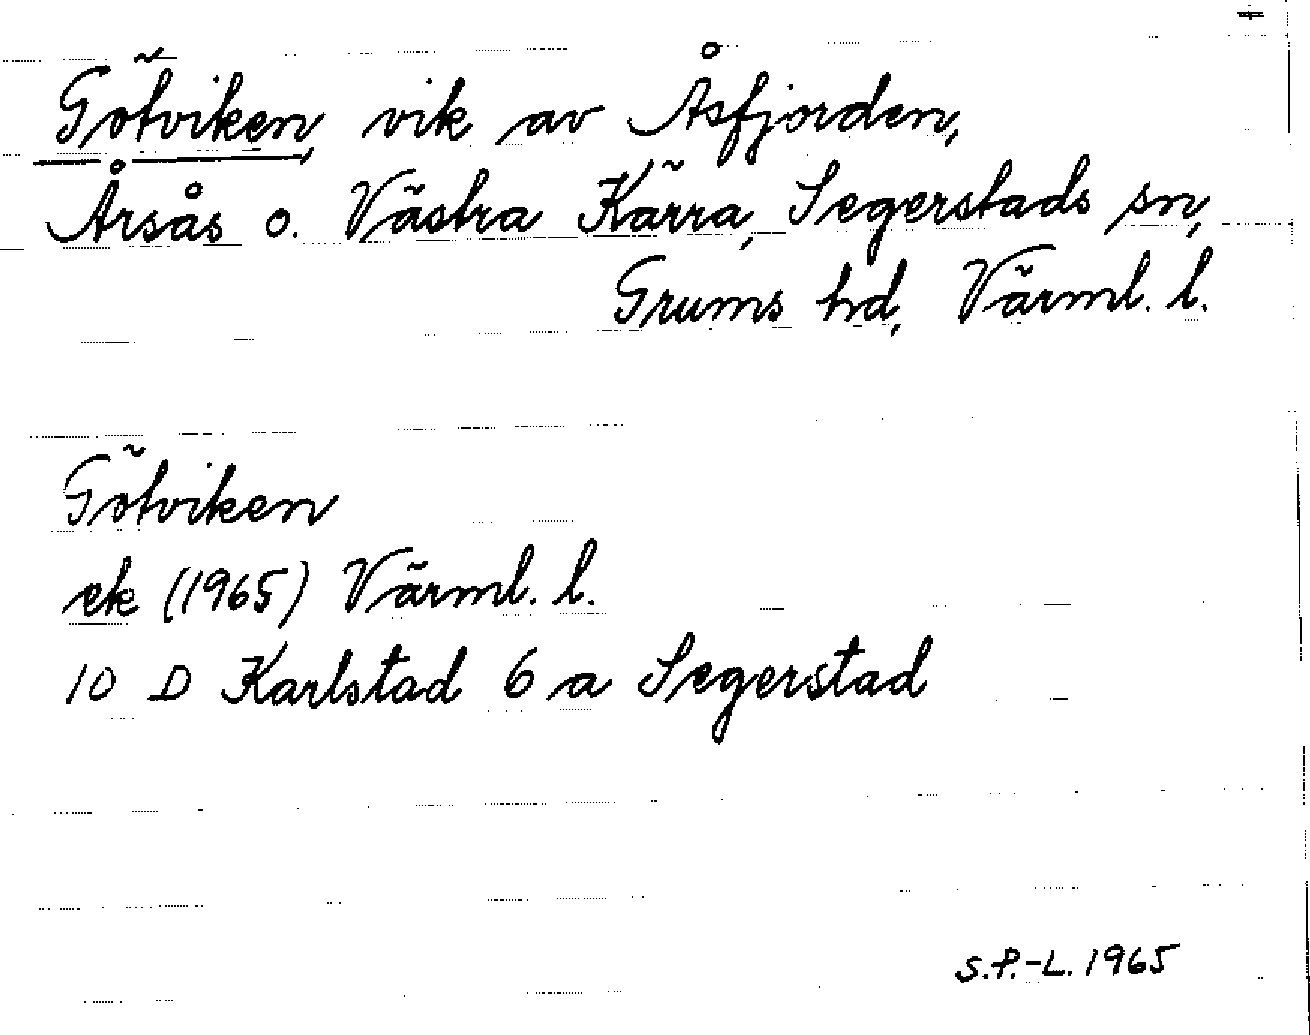 Götviken, vik av Åsfjorden,
Årsås o. Västra Kärra, Segerstads sn,
Grums hd, Värml. l.
Götviken
ek (1965) Värml. l.
10 D Karlstad 6 a Segerstad
S.P.-L. 1965